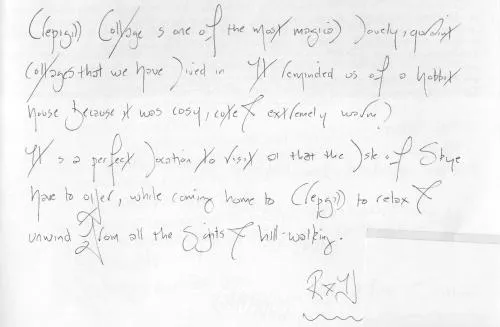 Clepigill Cottage is one of the most magical, lovely, quaint
cottages that we have lived in. It reminded us of a hobbit
house because it was cosy, cute & extremely warm!
It is a perfect location to visit all that the Isle of Skye
have to offer, while coming home to Clepgill to relax &
unwind from all the sights & hill-walking.